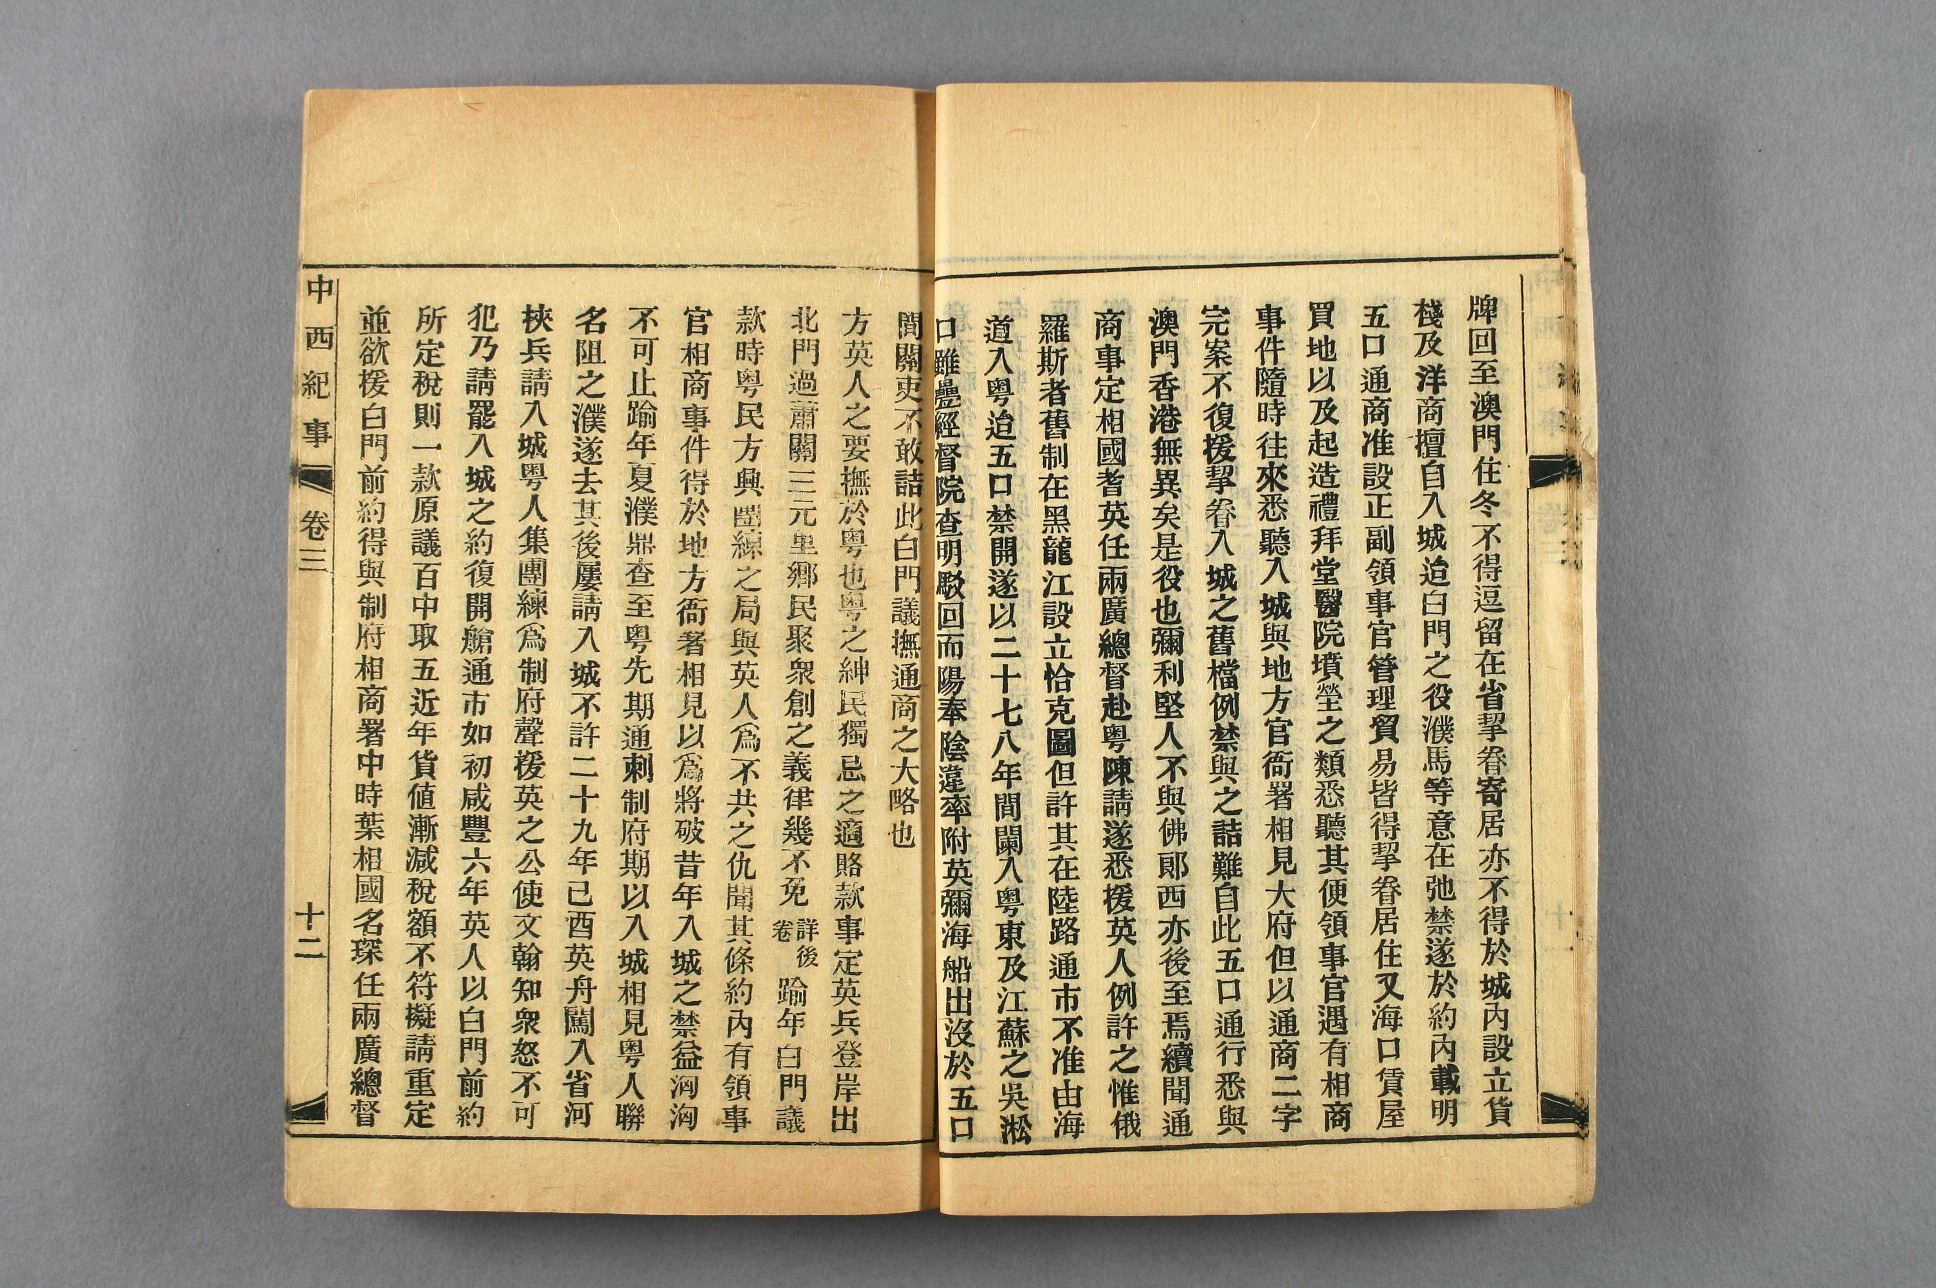 牌回至澳門住冬不得逗留在省挈眷寄居亦不得於城內設立貨
棧及洋商擅自入城迨白門之役濮馬等意在弛禁遂於約內載明
五口通商准設正副領事官管理貿易皆得挈眷居住又海口賃屋
買地以及起造禮拜堂醫院墳塋之類悉聽其便領事官遇有相商
事件隨時往來悉聽入城與地方官衙署相見大府但以通商二字
完案不復援挈眷入城之舊檔例禁與之詰難自此五口通行悉與
澳門香港無異矣是役也彌利堅人不與佛郞西亦後至焉續聞通
商事定相國耆英任兩廣總督赴粤陳請遂悉援英人例許之惟俄
羅斯者舊制在黑龍江設立恰克圖但許其在陸路通市不准由海
道入粤迨五口禁開遂以二十七八年間闌入粤東及江蘇之吳淞
口雖疊經督院查明駁回而陽奉陰違率附英彌海船出沒於五口
間關吏不敢詰此白門議撫通商之大略也
方英人之要撫於粤也粤之紳民獨忌之適賂款事定英兵登岸出
北門過蕭關三元里鄉民聚衆創之義律幾不免詳後卷踰年白門議
款時粤民方興團練之局與英人爲不共之仇聞其條約內有領事
官相商事件得於地方衙署相見以爲將破昔年入城之禁益洶洶
不可止踰年夏濮鼎查至粤先期通刺制府期以入城相見粤人聯
名阻之濮遂去其後屢請入城不許二十九年已酉英舟闖入省河
挾兵請入城粤人集團練爲制府聲援英之公使文翰知衆怒不可
犯乃請罷入城之約復開艙通市如初咸豐六年英人以白門前約
所定稅則一款原議百中取五近年貨値漸減稅額不符擬請重定
並欲援白門前約得與制府相商署中時葉相國名琛任兩廣總督
中西紀事
卷三
十二